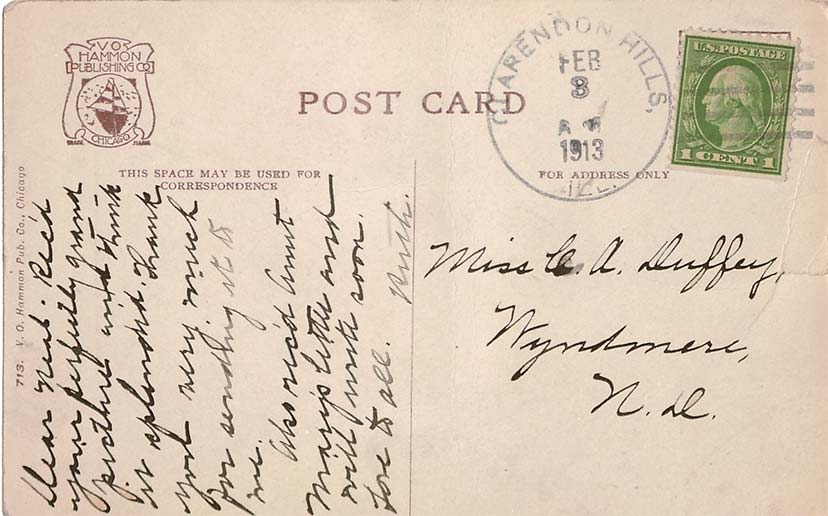 V.O.
HAMMON
PUBLISHING CO.
CHICAGO
TRADE MARK
POST CARD
CLARENDON HILLS,
FEB
3
A M
1913
ILL.
U.S. POSTAGE
1 CENT 1
THIS SPACE MAY BE USED FOR
CORRESPONDENCE
FOR ADDRESS ONLY
713. V. O. Hammon Pub. Co., Chicago
Dear Neal. Rec'd
your perfectly grand
picture and think
it splendid. Thank
you very much
for sending it to
me.
Also rec'd Aunt
Mary's letter and
will write soon.
Love to all. Ruth.
Miss C. A. Duffey,
Wyndmere,
N. D.